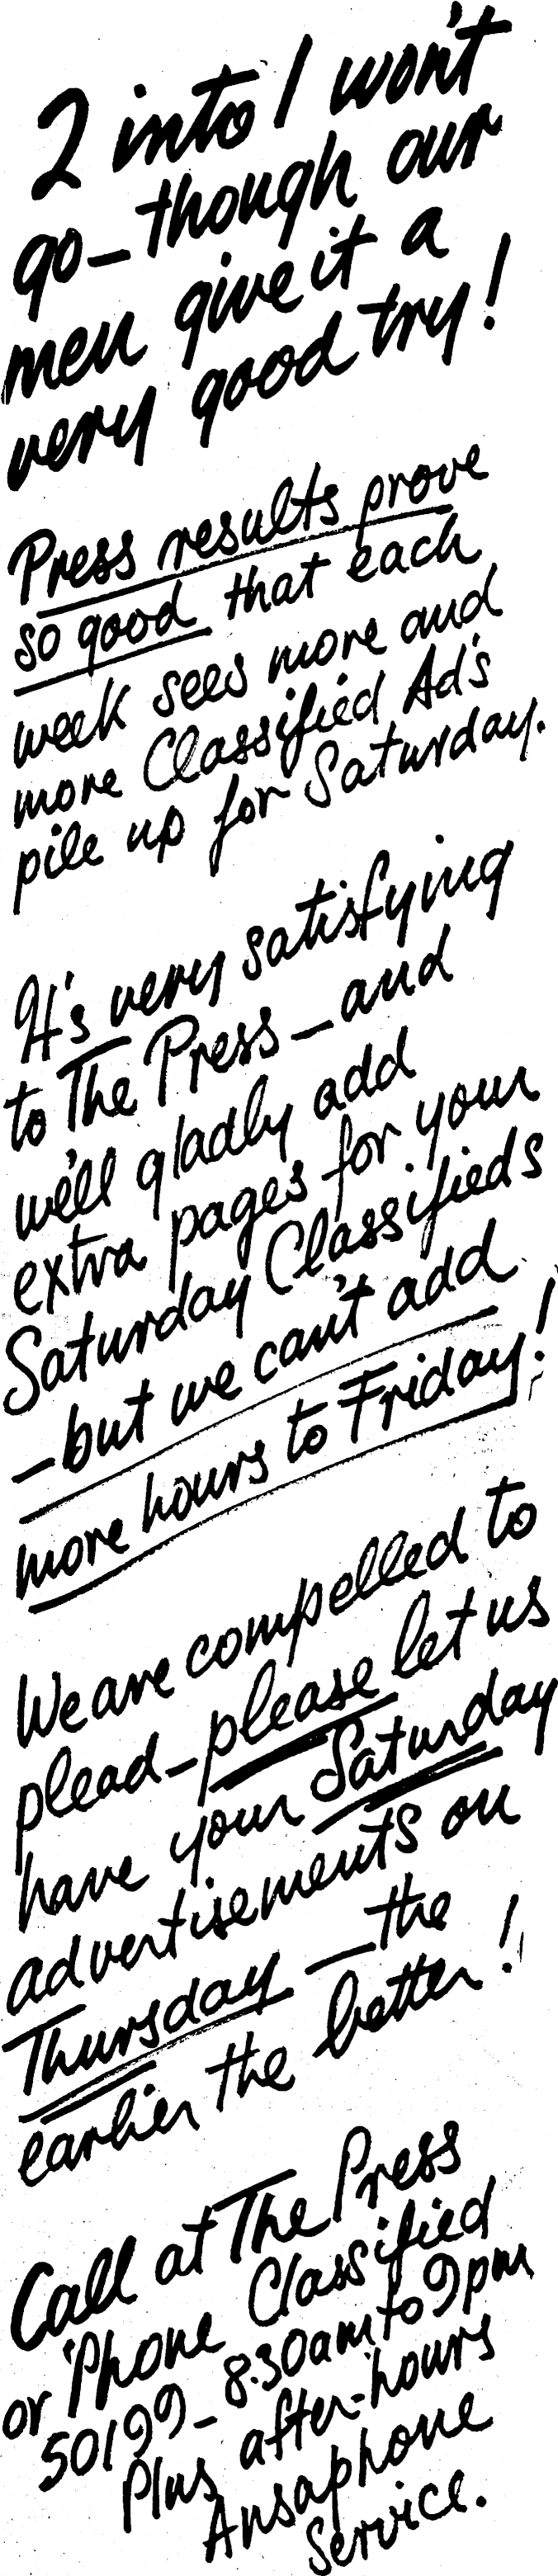 2 into 1 won't
go - though our
men give it a
very good try!
Press results prove
so good that each
week sees more and
more Classified Ad's
pile up for Saturday.
It's very satisfying
to The Press - and
we'll gladly add
extra pages for your
Saturday Classifieds
- but we can't add
more hours to Friday!
We are compelled to
plead - please let us
have your Saturday
advertisements on
Thursday - the
earlier the better!
Call at The Press
or 'Phone Classified
50199 - 8.30am to 9pm
Plus after-hours
Ansaphone
Service.